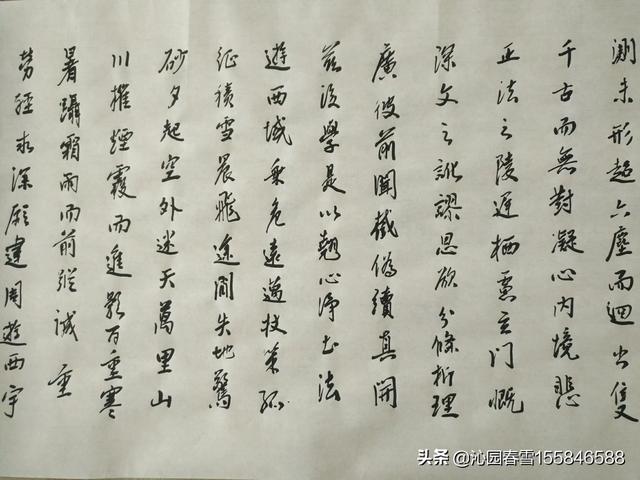 測未形超六塵而迥出隻
千古而無對凝心內境悲
正法之陵遲栖慮玄門慨
深文之訛謬思欲分條析理
廣彼前聞截偽續真開
茲後學是以翹心淨土法
遊西域乘危遠邁杖策孤
征積雪晨飛途間失地驚
砂夕起空外迷天萬里山
川撥煙霞而進影百重寒
暑躡霜雨而前蹤誠重
勞輕求深願達周遊西宇
头条 @沁园春雪155846588